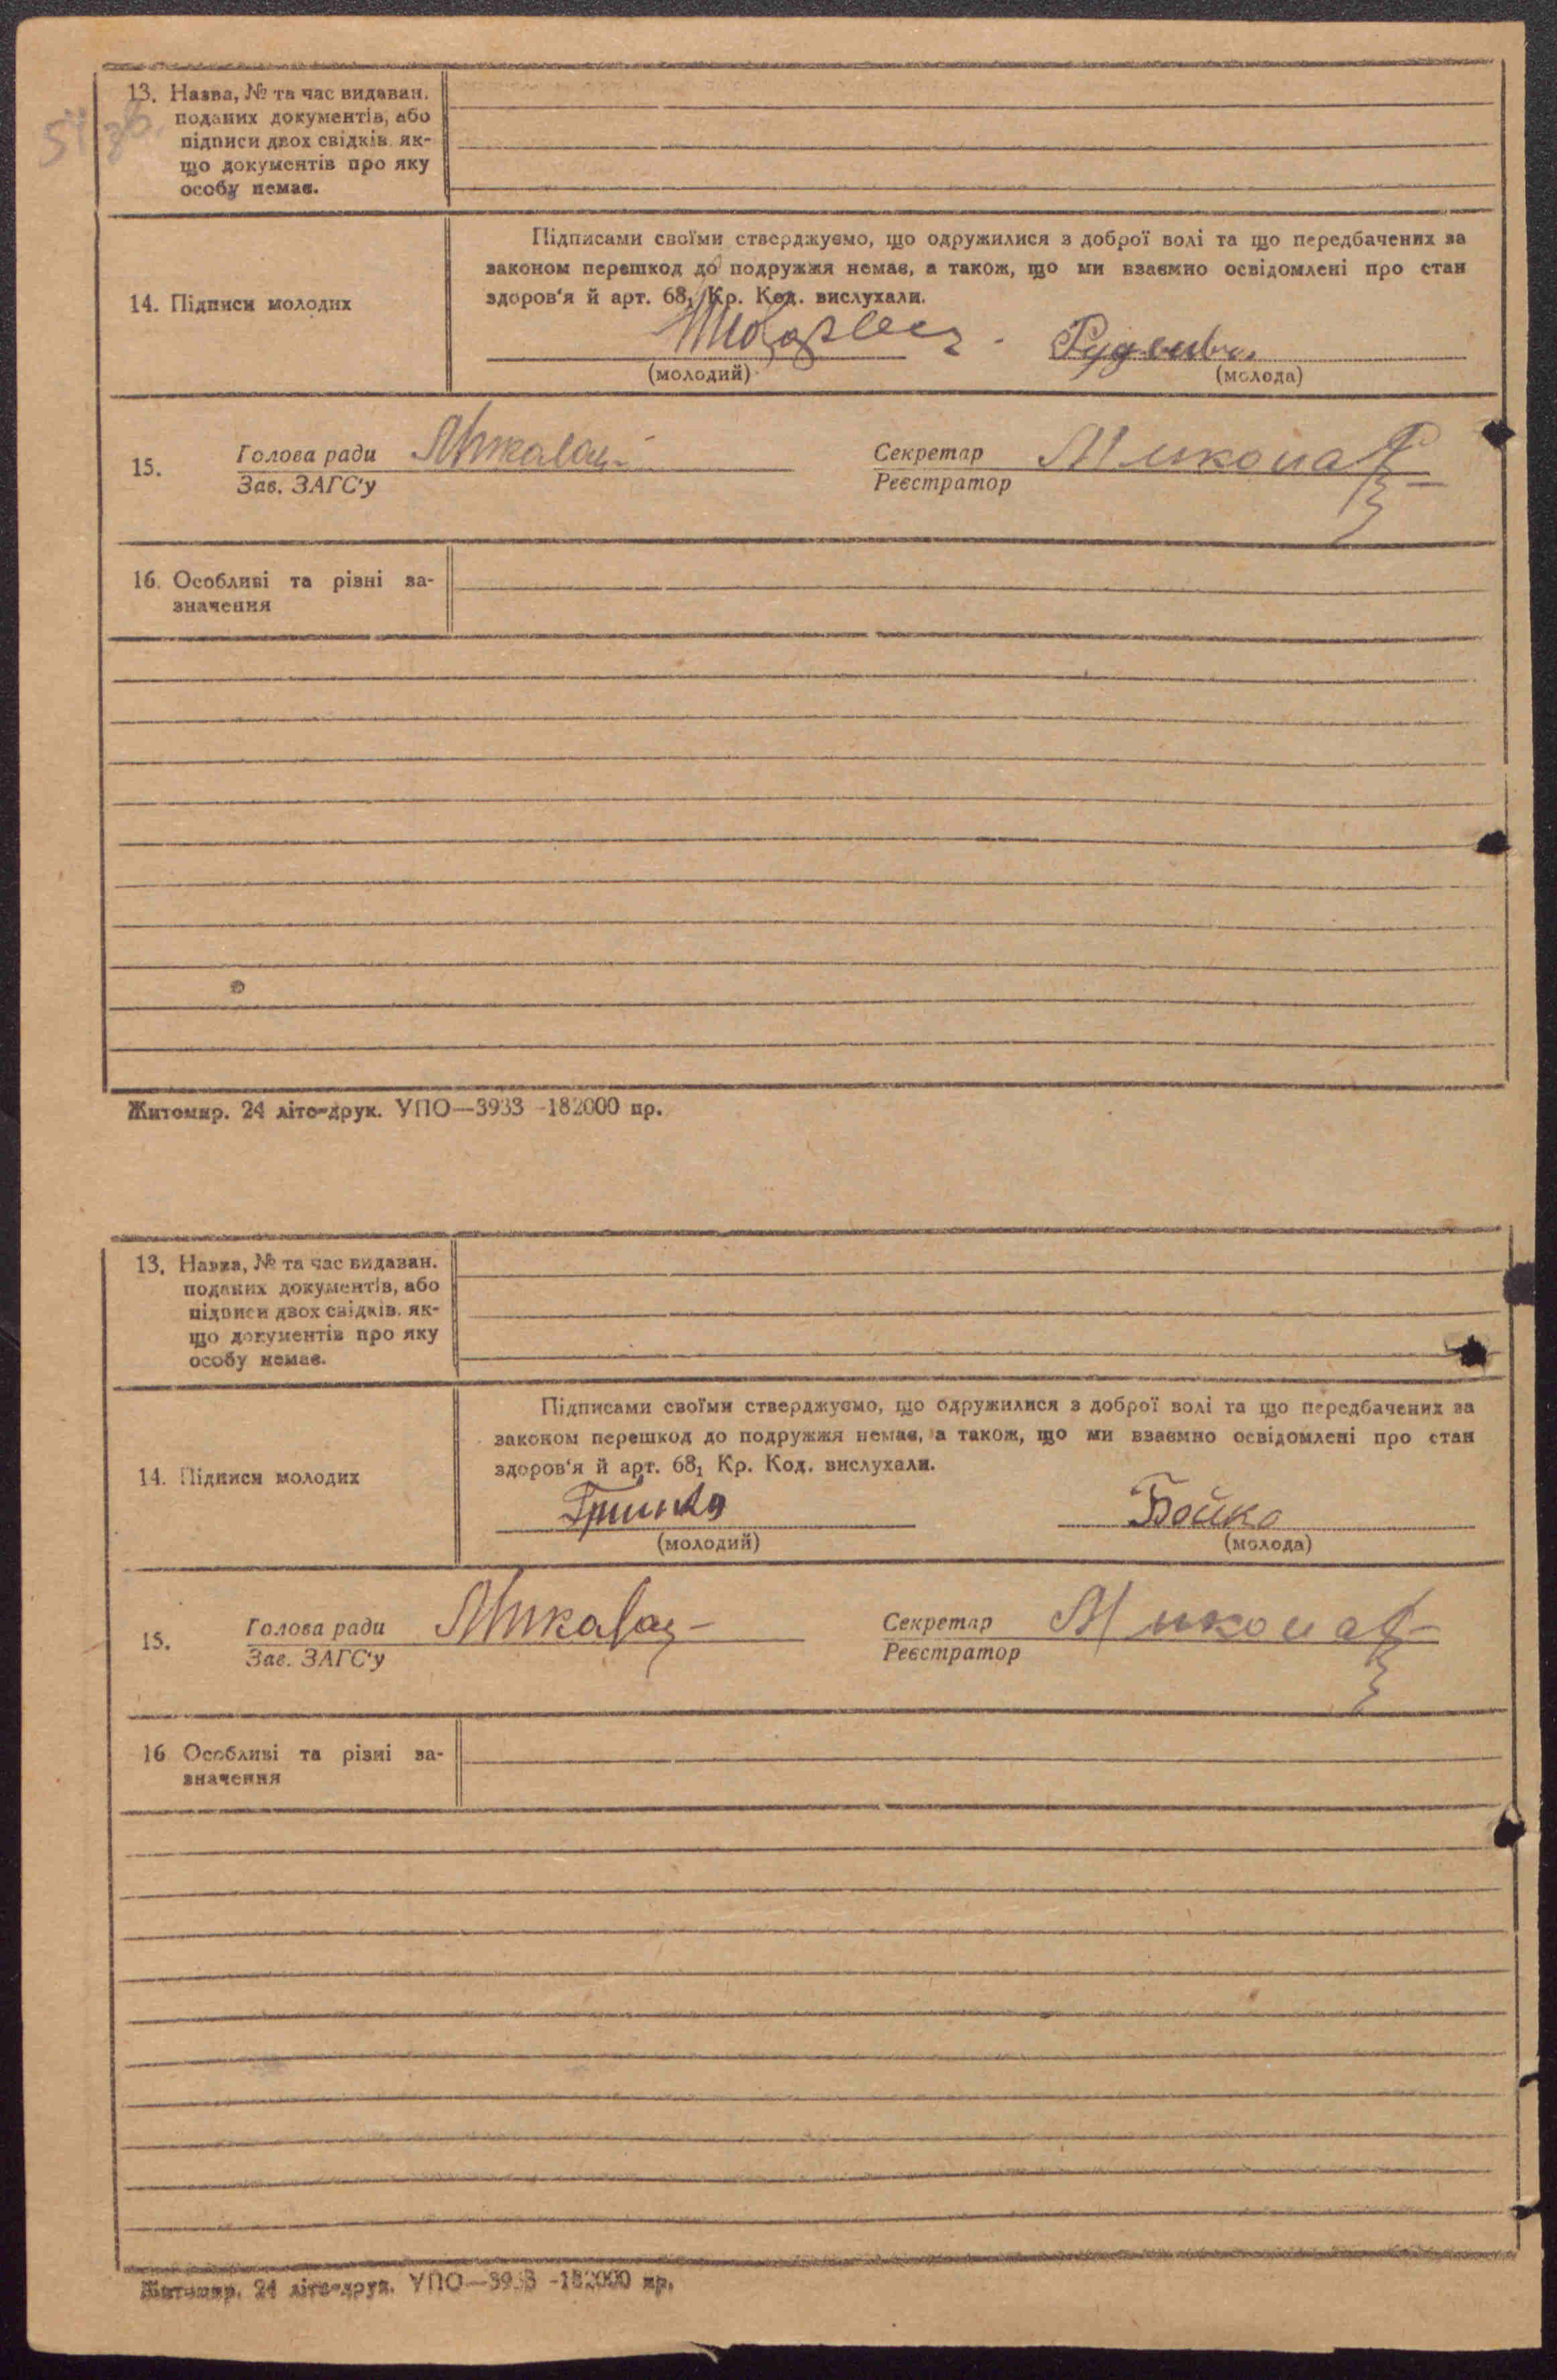 54 зв.
13. Назва, № та час видаван.
поданих документів, або
підписи двох свідків, як-
що документів про яку
особу немає.
Підписами своїми стверджуємо, що одружилися з доброї волі та що передбачених за
законом перешкод до подружжя немає, а також, що ми взаємно освідомлені про стан
здоров'я й арт. 68₁ Кр. Код. вислухали.
14. Підписи молодих
Руденко
(молодий) (молода)
15. Голова ради Секретар
Зав. ЗАГС'у Реєстратор
16. Особливі та різні за-
значення
Житомир. 24 літо-друк. УПО—3933 -182000 пр.
13. Назва, № та час видаван.
поданих документів, або
підписи двох свідків, як-
що документів про яку
особу немає.
Підписами своїми стверджуємо, що одружилися з доброї волі та що передбачених за
законом перешкод до подружжя немає, а також, що ми взаємно освідомлені про стан
здоров'я й арт. 68₁ Кр. Код. вислухали.
14. Підписи молодих
Гринько Бойко
(молодий) (молода)
15. Голова ради Секретар
Зав. ЗАГС'у Реєстратор
16 Особливі та різні за-
значення
Житомир. 24 літо-друк. УПО—3933 -182000 пр.